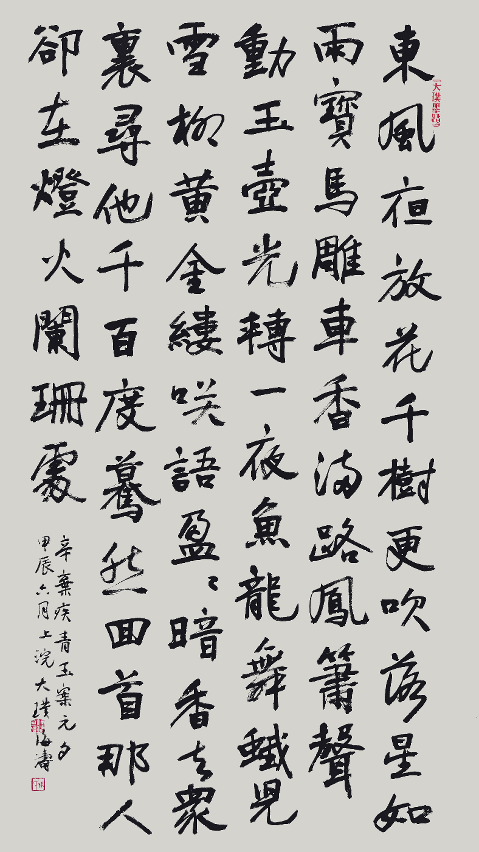 東風亱放花千樹更吹落星如
雨寶馬雕車香滿路鳳簫聲
動玉壺光轉一夜魚龍舞蛾兒
雪柳黃金縷咲語盈〻暗香去眾
裏尋他千百度驀然回首那人
卻在燈火闌珊處
辛棄疾青玉案元夕
甲辰六月上浣大璞海濤